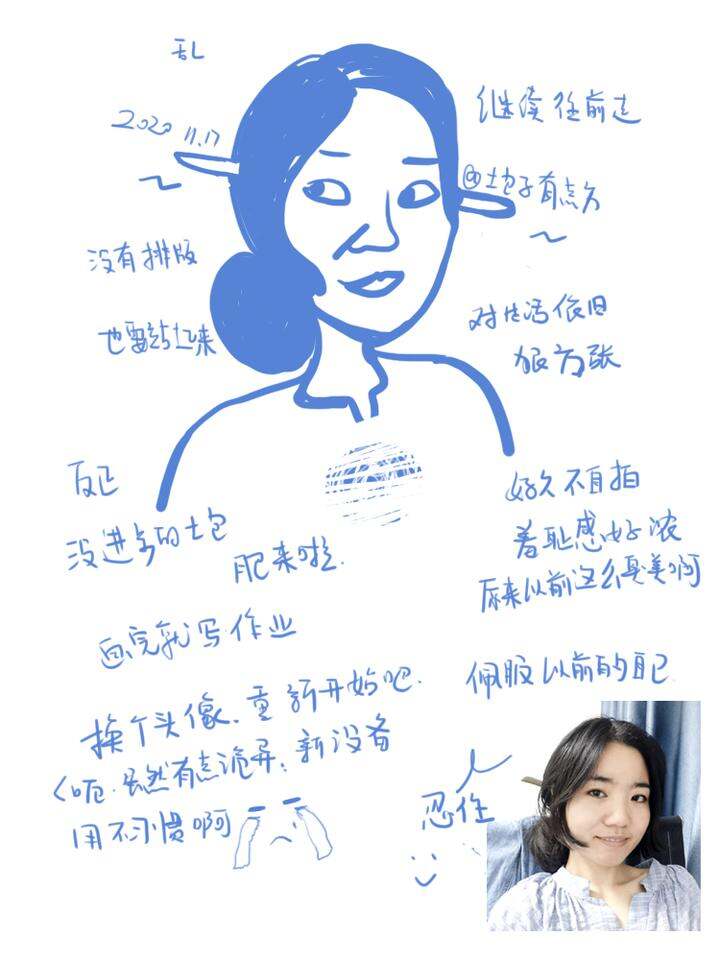 乱
继续往前走
2020 11.17
@土包子有点方
没有排版
也要站起来
对生活依旧
很方张
反正
没进步的土包
肥来啦.
好久不自拍
羞耻感好浓
原来以前这么臭美啊
画完就写作业
佩服以前的自己
换个头像.重新开始吧.
(呃.虽然有点诡异;新设备
用不习惯啊
忍住